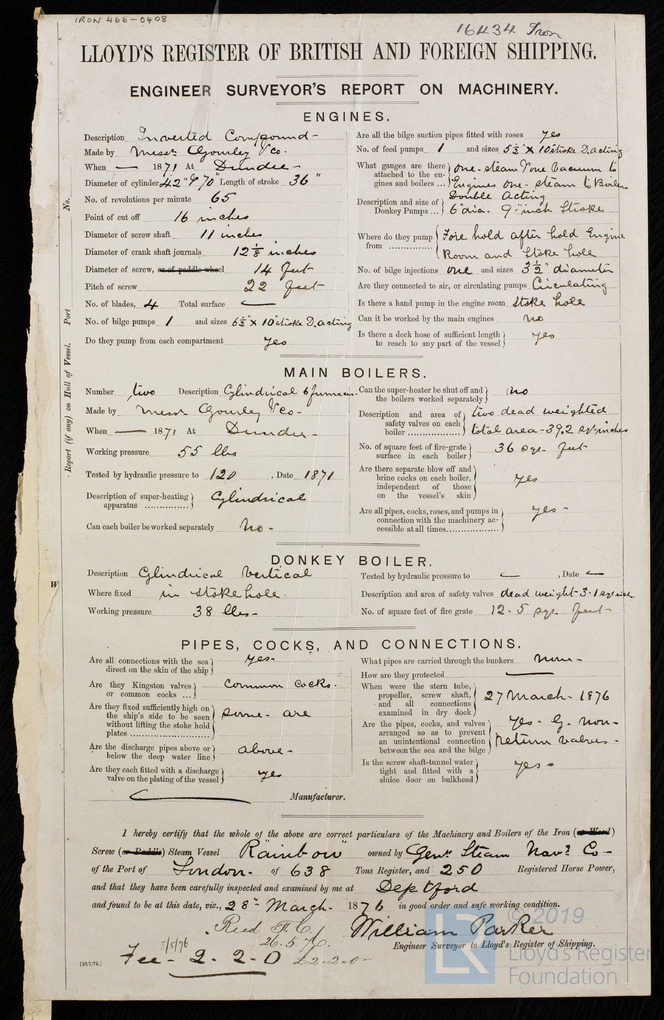 IRON 466-0408
16434 Iron
LLOYD'S REGISTER OF BRITISH AND FOREIGN SHIPPING.
ENGINEER SURVEYOR'S REPORT ON MACHINERY.
ENGINES.
Description Inverted Compound-
Made by Messrs Gourley & Co-
When — 1871 At Dundee-
Diameter of cylinder 42" & 70" Length of stroke 36"
No. of revolutions per minute 65
Point of cut off 16 inches
Diameter of screw shaft 11 inches
Diameter of crank shaft journals 12 1/8 inches
Diameter of screw, or of paddle wheel 14 feet
Pitch of screw 22 feet
No. of blades, 4 Total surface —
No. of bilge pumps 1 and sizes 6½" x 10" stroke D. acting
Do they pump from each compartment yes
Are all the bilge suction pipes fitted with roses yes
No. of feed pumps 1 and sizes 5½" x 10" stroke D acting
What gauges are there attached to the engines and boilers... One-steam & one Vacuum to
Engines one-steam to Boilers
Description and size of Donkey Pumps... Double Acting
6" dia. 9" inch Stroke
Where do they pump from ............... Fore hold after hold Engine
Room and Stoke hole
No. of bilge injections one and sizes 3½" diameter
Are they connected to air, or circulating pumps Circulating
Is there a hand pump in the engine room Stoke hole
Can it be worked by the main engines no
Is there a deck hose of sufficient length to reach to any part of the vessel yes
No.
Port
Report (if any) on Hull of Vessel.
W
MAIN BOILERS.
Number two Description Cylindrical 6 furnaces
Made by Messrs Gourley & Co-
When — 1871 At Dundee-
Working pressure 55 lbs
Tested by hydraulic pressure to 120, Date 1871
Description of super-heating apparatus ............... Cylindrical
Can each boiler be worked separately No-
Can the super-heater be shut off and the boilers worked separately no
Description and area of safety valves on each boiler .................. two dead weighted
total area-39.2 sq. inches
No. of square feet of fire-grate surface in each boiler 36 sqr. feet
Are there separate blow off and brine cocks on each boiler, independent of those on the vessel's skin yes
Are all pipes, cocks, roses, and pumps in connection with the machinery accessible at all times.................. yes-
DONKEY BOILER.
Description Cylindrical Vertical
Where fixed in stoke hole.
Working pressure 38 lbs-
Tested by hydraulic pressure to —, Date —
Description and area of safety valves dead weight-3.1 sq. inch
No. of square feet of fire grate 12.5 sqr. feet
PIPES, COCKS, AND CONNECTIONS.
Are all connections with the sea direct on the skin of the ship yes-
Are they Kingston valves or common cocks ... Common Cocks.
Are they fixed sufficiently high on the ship's side to be seen without lifting the stoke hold plates .................. some-are
Are the discharge pipes above or below the deep water line above-
Are they each fitted with a discharge valve on the plating of the vessel yes
What pipes are carried through the bunkers non-
How are they protected —
When were the stern tube, propeller, screw shaft, and all connections examined in dry dock 27 March-1876
Are the pipes, cocks, and valves arranged so as to prevent an unintentional connection between the sea and the bilge yes- G. non-
return valves-
Is the screw shaft-tunnel water tight and fitted with a sluice door on bulkhead yes-
Manufacturer.
I hereby certify that the whole of the above are correct particulars of the Machinery and Boilers of the Iron (or Wood)
Screw (or Paddle) Steam Vessel "Rainbow" owned by Genl. Steam Navn. Co-
of the Port of London- of 638 Tons Register, and 250 Registered Horse Power,
and that they have been carefully inspected and examined by me at Deptford
and found to be at this date, viz., 28th March- 1876 in good order and safe working condition.
William Parker
Engineer Surveyor to Lloyd's Register of Shipping.
26.5.76
5/5/76
Fee- 2-2-0 £2-2-0-
© 2019
LR
Lloyd's Register
Foundation